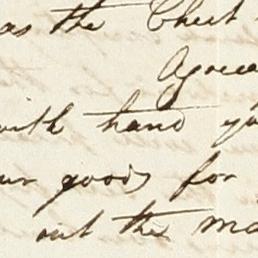 as the Chest
Agreea
with hand yo
ur goods for
out the ma